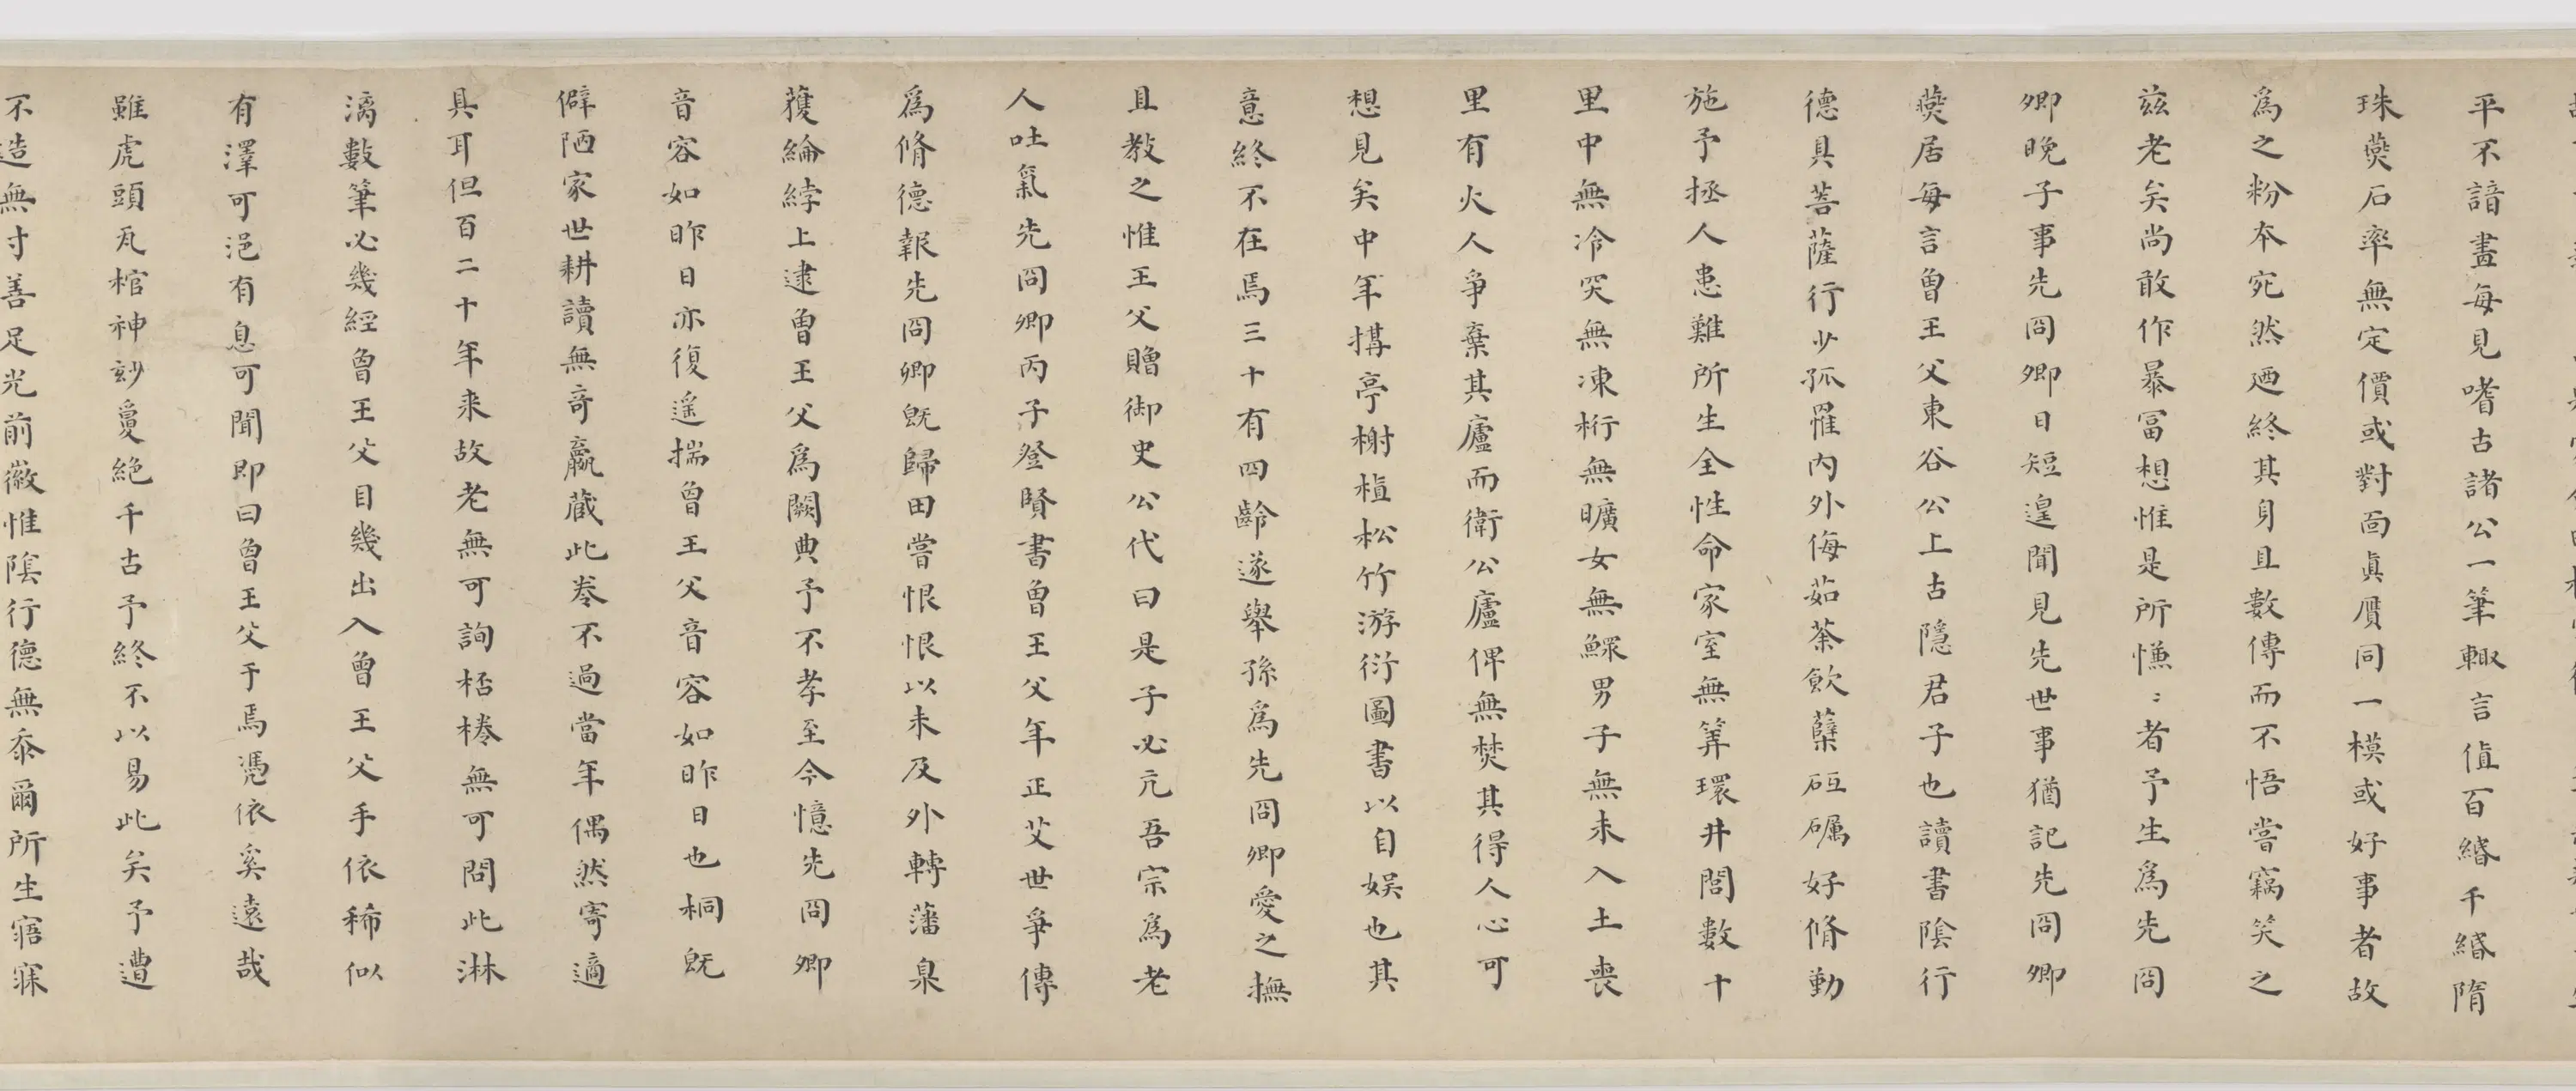 平不諳畫每見嗜古諸公一筆輙言值百緡千緡隋
珠燕石率無定價或對面真贋同一模或好事者故
爲之粉本宛然廼終其身且數傳而不悟嘗竊笑之
兹老矣尚敢作暴冨想惟是所慊：者予生爲先冏
卿晚子事先冏卿日短遑聞見先世事猶記先冏卿
燕居每言曾王父東谷公上古隱君子也讀書陰行
德具菩薩行少孤罹内外侮茹荼飲蘖砥礪好脩勤
施予拯人患難所生全性命家室無筭環井閭數十
里中無冷突無凍桁無曠女無鰥男子無未入土喪
里有火人爭棄其廬而衛公廬俾無焚其得人心可
想見矣中年搆亭榭植松竹游衍圖書以自娱也其
意終不在焉三十有四齡遂舉孫爲先冏卿愛之撫
且教之惟王父贈御史公代曰是子必亢吾宗爲老
人吐氣先冏卿丙子登賢書曾王父年正艾世爭傳
爲脩德報先冏卿既歸田嘗恨恨以未及外轉藩臬
獲綸綍上逮曾王父爲闕典予不孝至今憶先冏卿
音容如昨日亦復遥揣曾王父音容如昨日也桐既
僻陋家世耕讀無奇羸蔵此卷不過當年偶然寄適
具耳但百二十年来故老無可詢桮棬無可問此淋
漓數筆必幾經曾王父目幾出入曾王父手依稀似
有澤可浥有息可聞即曰曾王父于焉憑依奚遠哉
雖虎頭瓦棺神玅敻絶千古予終不以易此矣予遭
不造無寸善足光前徽惟隂行德無忝爾所生寤寐